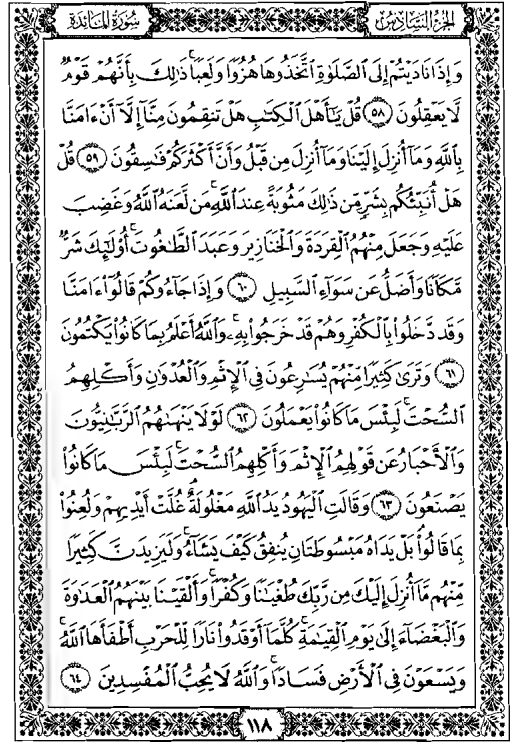 الجزء السادس
سورة المائدة
وَإِذَا نَادَيْتُمْ إِلَى الصَّلَوٰةِ اتَّخَذُوهَا هُزُوًا وَلَعِبًا ۚ ذَٰلِكَ بِأَنَّهُمْ قَوْمٌ
لَّا يَعْقِلُونَ ٥٨ قُلْ يَـٰٓأَهْلَ الْكِتَـٰبِ هَلْ تَنقِمُونَ مِنَّآ إِلَّآ أَنْ ءَامَنَّا
بِاللَّهِ وَمَآ أُنزِلَ إِلَيْنَا وَمَآ أُنزِلَ مِن قَبْلُ وَأَنَّ أَكْثَرَكُمْ فَـٰسِقُونَ ٥٩ قُلْ
هَلْ أُنَبِّئُكُم بِشَرٍّ مِّن ذَٰلِكَ مَثُوبَةً عِندَ اللَّهِ ۚ مَن لَّعَنَهُ اللَّهُ وَغَضِبَ
عَلَيْهِ وَجَعَلَ مِنْهُمُ الْقِرَدَةَ وَالْخَنَازِيرَ وَعَبَدَ الطَّـٰغُوتَ ۚ أُو۟لَـٰٓئِكَ شَرٌّ
مَّكَانًا وَأَضَلُّ عَن سَوَآءِ السَّبِيلِ ٦٠ وَإِذَا جَآءُوكُمْ قَالُوٓا۟ ءَامَنَّا
وَقَد دَّخَلُوا۟ بِالْكُفْرِ وَهُمْ قَدْ خَرَجُوا۟ بِهِۦ ۚ وَاللَّهُ أَعْلَمُ بِمَا كَانُوا۟ يَكْتُمُونَ
٦١ وَتَرَىٰ كَثِيرًا مِّنْهُمْ يُسَـٰرِعُونَ فِى الْإِثْمِ وَالْعُدْوَٰنِ وَأَكْلِهِمُ
السُّحْتَ ۚ لَبِئْسَ مَا كَانُوا۟ يَعْمَلُونَ ٦٢ لَوْلَا يَنْهَىٰهُمُ الرَّبَّـٰنِيُّونَ
وَالْأَحْبَارُ عَن قَوْلِهِمُ الْإِثْمَ وَأَكْلِهِمُ السُّحْتَ ۚ لَبِئْسَ مَا كَانُوا۟
يَصْنَعُونَ ٦٣ وَقَالَتِ الْيَهُودُ يَدُ اللَّهِ مَغْلُولَةٌ ۚ غُلَّتْ أَيْدِيهِمْ وَلُعِنُوا۟
بِمَا قَالُوا۟ ۘ بَلْ يَدَاهُ مَبْسُوطَتَانِ يُنفِقُ كَيْفَ يَشَآءُ ۚ وَلَيَزِيدَنَّ كَثِيرًا
مِّنْهُم مَّآ أُنزِلَ إِلَيْكَ مِن رَّبِّكَ طُغْيَـٰنًا وَكُفْرًا ۚ وَأَلْقَيْنَا بَيْنَهُمُ الْعَدَٰوَةَ
وَالْبَغْضَآءَ إِلَىٰ يَوْمِ الْقِيَـٰمَةِ ۚ كُلَّمَآ أَوْقَدُوا۟ نَارًا لِّلْحَرْبِ أَطْفَأَهَا اللَّهُ ۚ
وَيَسْعَوْنَ فِى الْأَرْضِ فَسَادًا ۚ وَاللَّهُ لَا يُحِبُّ الْمُفْسِدِينَ ٦٤
١١٨